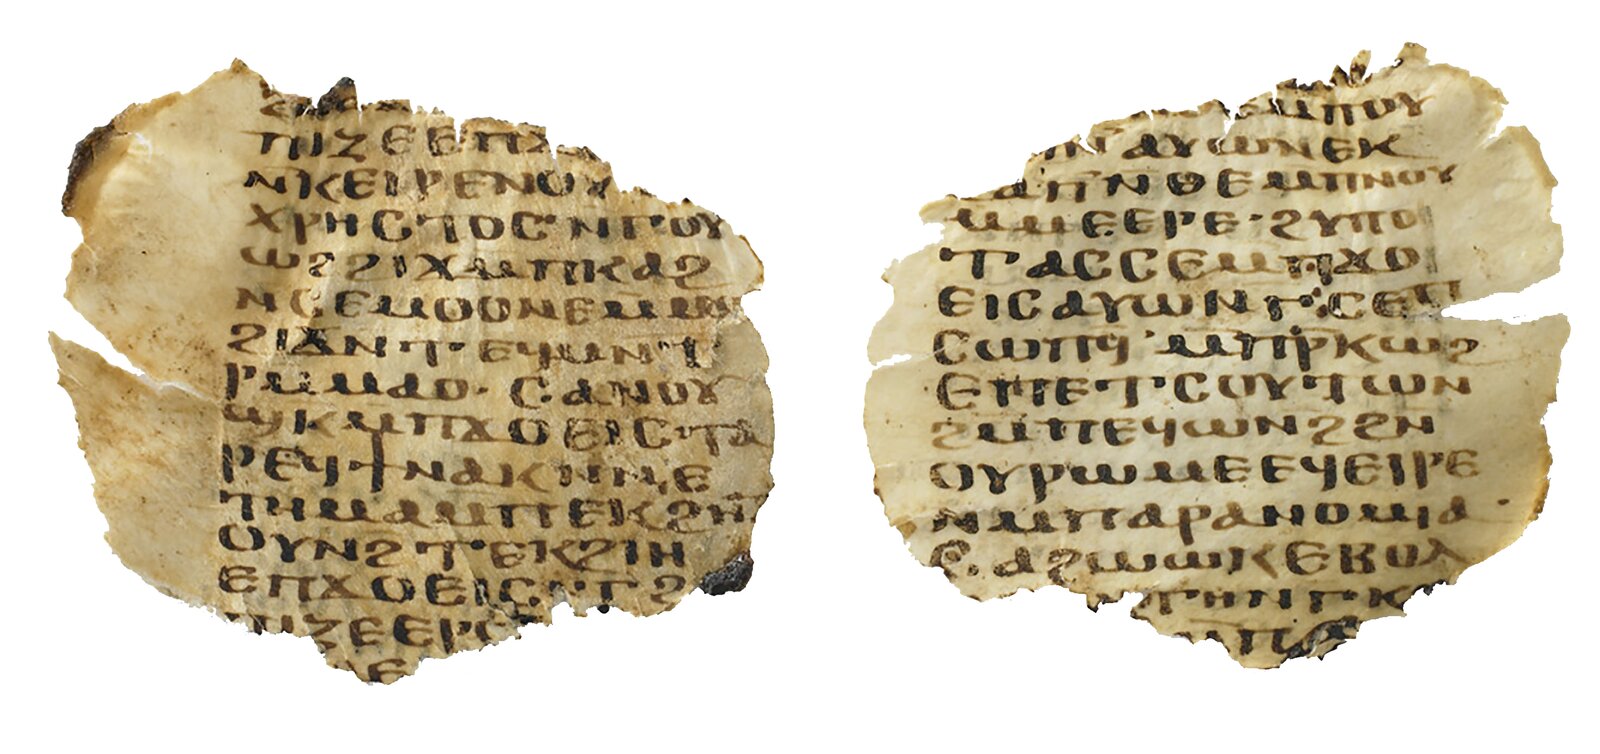 ⲡⲓⲍⲉ ⲉⲡϫ
ⲛⲕⲉⲓⲣⲉ ⲛⲟⲩ
ⲭⲣⲏⲥⲧⲟⲥ ⲛⲅⲟⲩ
ⲱϩ ϩⲓϫⲙ ⲡⲕⲁϩ
ⲛⲥⲉⲙⲟⲟⲛⲉ ⲙⲙⲟ
ϩⲓϫⲛ ⲧⲉϥⲙⲛⲧ
ⲣⲙⲙⲁⲟ· ⲥⲁⲛⲟⲩ
ϣⲕ ⲙⲡϫⲟⲉⲓⲥ ⲧⲁ
ⲣⲉϥϯ ⲛⲁⲕ ⲛⲛⲉ
ⲧⲏⲙⲁ ⲙⲡⲉⲕϩⲏⲧ
ⲟⲩⲛϩ ⲧⲉⲕϩⲓⲏ
ⲉⲡϫⲟⲉⲓⲥ ⲛⲅϩ
ⲡⲓⲍⲉ ⲉⲣⲟ
ⲙⲡⲟⲩ
ⲁⲩⲱ ⲡⲉⲕ
ϩⲁⲡ ⲛⲑⲉ ⲙⲡⲛⲟⲩ
ⲙⲙⲉⲉⲣⲉ· ϩⲩⲡⲟ
ⲧⲁⲥⲥⲉ ⲙⲡϫⲟ
ⲉⲓⲥ ⲁⲩⲱ ⲛⲅⲥⲉⲡ
ⲥⲱⲡϥ ⲙⲡⲣⲕⲱϩ
ⲉⲡⲉⲧⲥⲟⲩⲧⲱⲛ
ϩⲙ ⲡⲉϥⲱⲛϩ ϩⲛ
ⲟⲩⲣⲱⲙⲉ ⲉϥⲉⲓⲣⲉ
ⲛⲙⲡⲁⲣⲁⲛⲟⲙⲓⲁ·
ⲥⲁϩⲱⲱⲕ ⲉⲃⲟⲗ
ⲅⲏ ⲛⲅⲕ